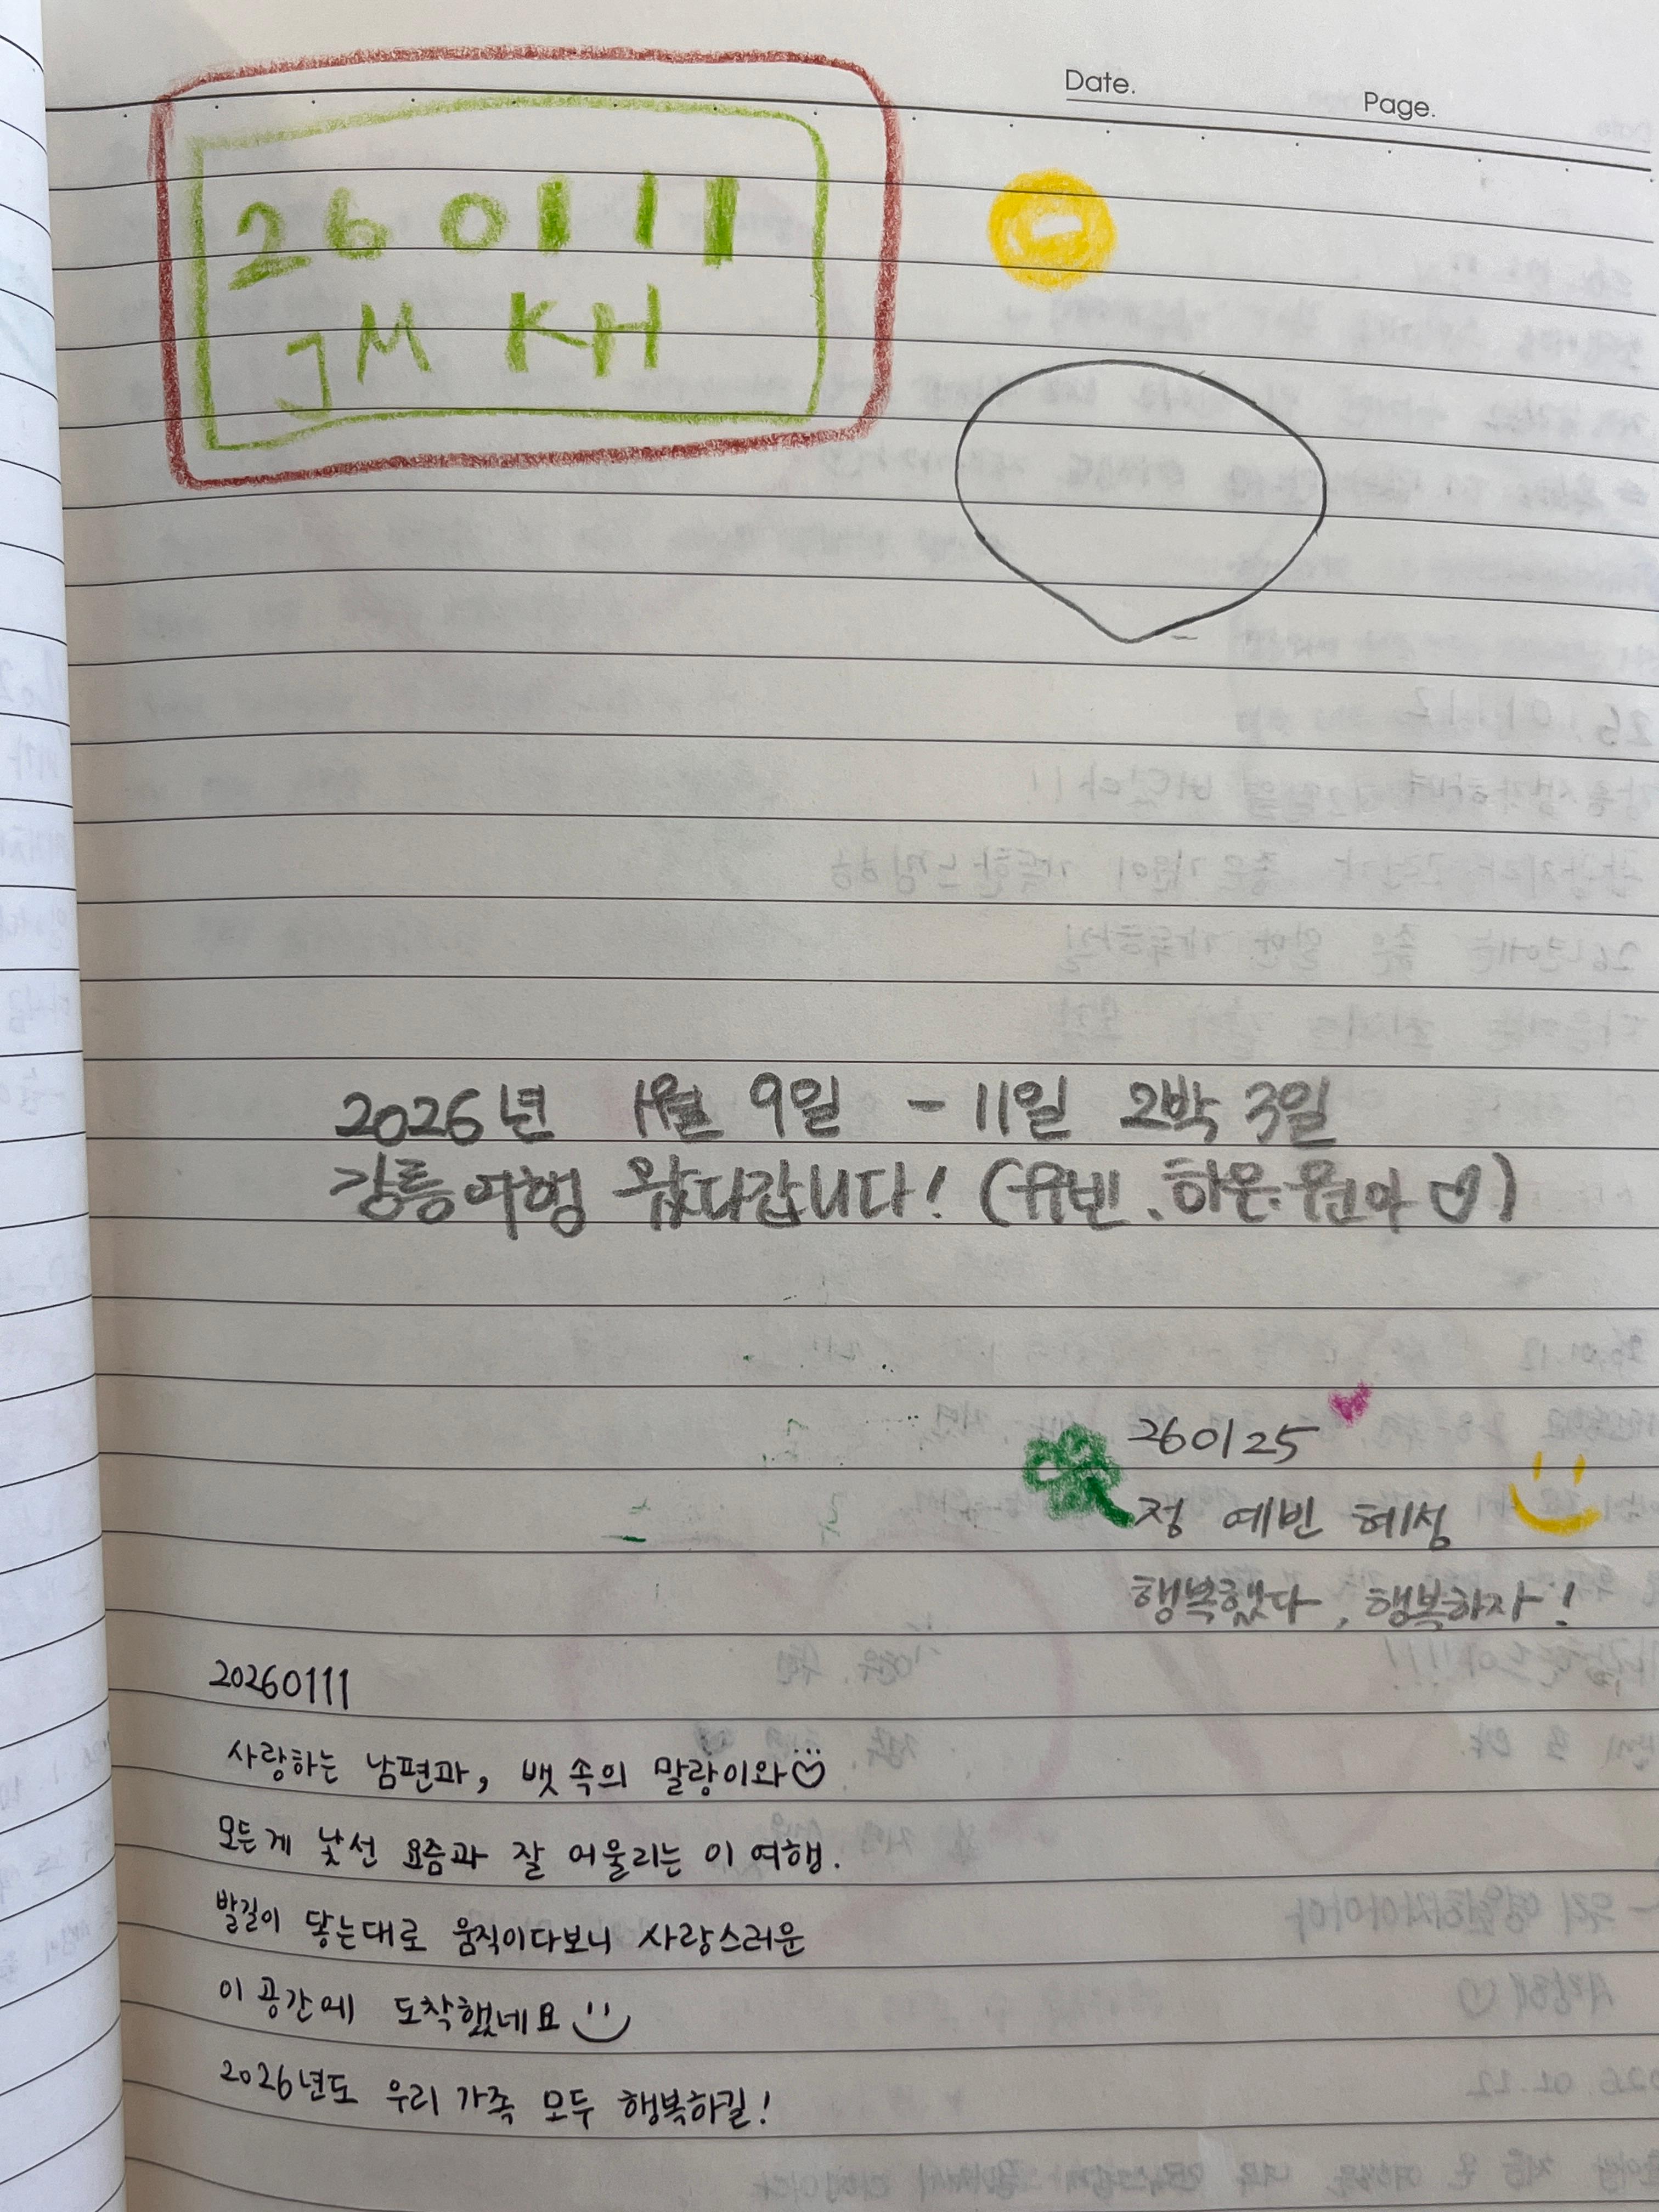 Date.
Page.
260111
JM KH
2026년 1월 9일 - 11일 2박 3일
강릉여행 왔다갑니다! (유빈, 하은, 원아♡)
260125
정 예빈 혜성
행복했다, 행복하자!
20260111
사랑하는 남편과, 뱃속의 말랑이와♡
모든게 낯선 요즘과 잘 어울리는 이 여행.
발길이 닿는대로 움직이다보니 사랑스러운
이 공간에 도착했네요
2026년도 우리 가족 모두 행복하길!